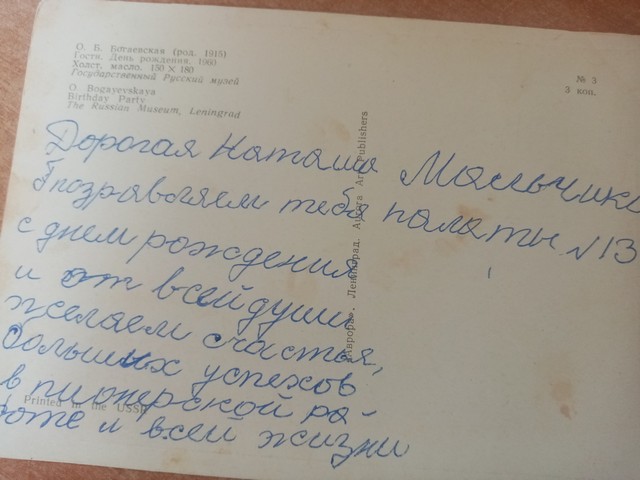 О. Б. Богаевская (род. 1915)
Гости. День рождения. 1960
Холст, масло. 150 × 180
Государственный Русский музей
O. Bogayevskaya
Birthday Party
The Russian Museum, Leningrad
№ 3
3 коп.
«Аврора». Ленинград. Aurora Art Publishers
Дорогая Наташа
поздравляем тебя
с днем рождения
и от всей души
желаем счастья,
больших успехов
в пионерской ра-
боте и всей жизни
Мальчики
палаты N 13
Printed in the USSR